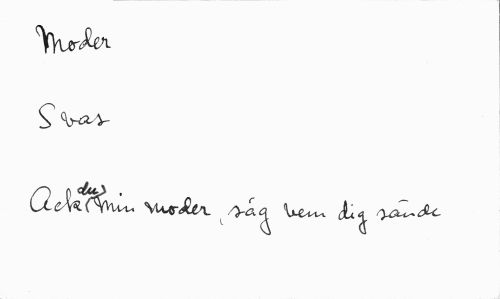 Moder
Svas
Ack du min moder, säg vem dig sände